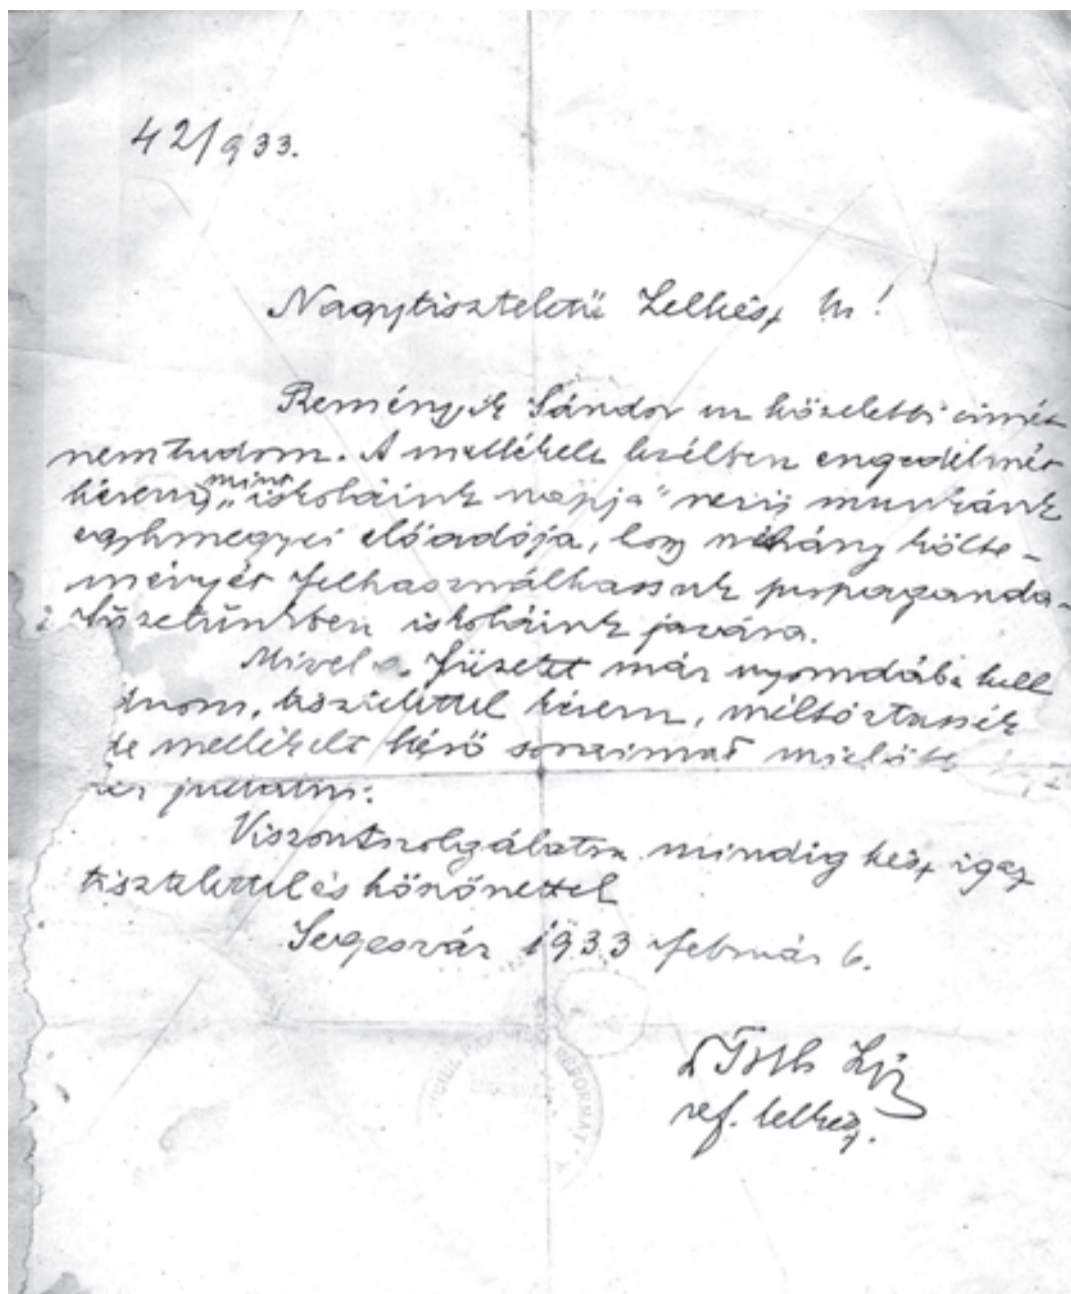 42/933.
Nagytiszteletü Lelkész Ur!
Reményik Sándor ur közelebbi cimét
nem tudom. A mellékelt levélben engedelmét
kérem, mint „iskoláink napja" nevü munkánk
egyhmegyei előadója, hogy néhány költe-
ményét felhasználhassuk propaganda-
füzetünkben iskoláink javára.
Mivel a füzetet már nyomdába kell
adnom, tisztelettel kérem, méltóztassék
de mellékelt kérő soraimat mielőbb
juttatni.
Viszontszolgálatra mindig kész igaz
tisztelettel és köszönettel
Segesvár 1933 február 6.
Tóth
ref. lelkész.
REFORMAT